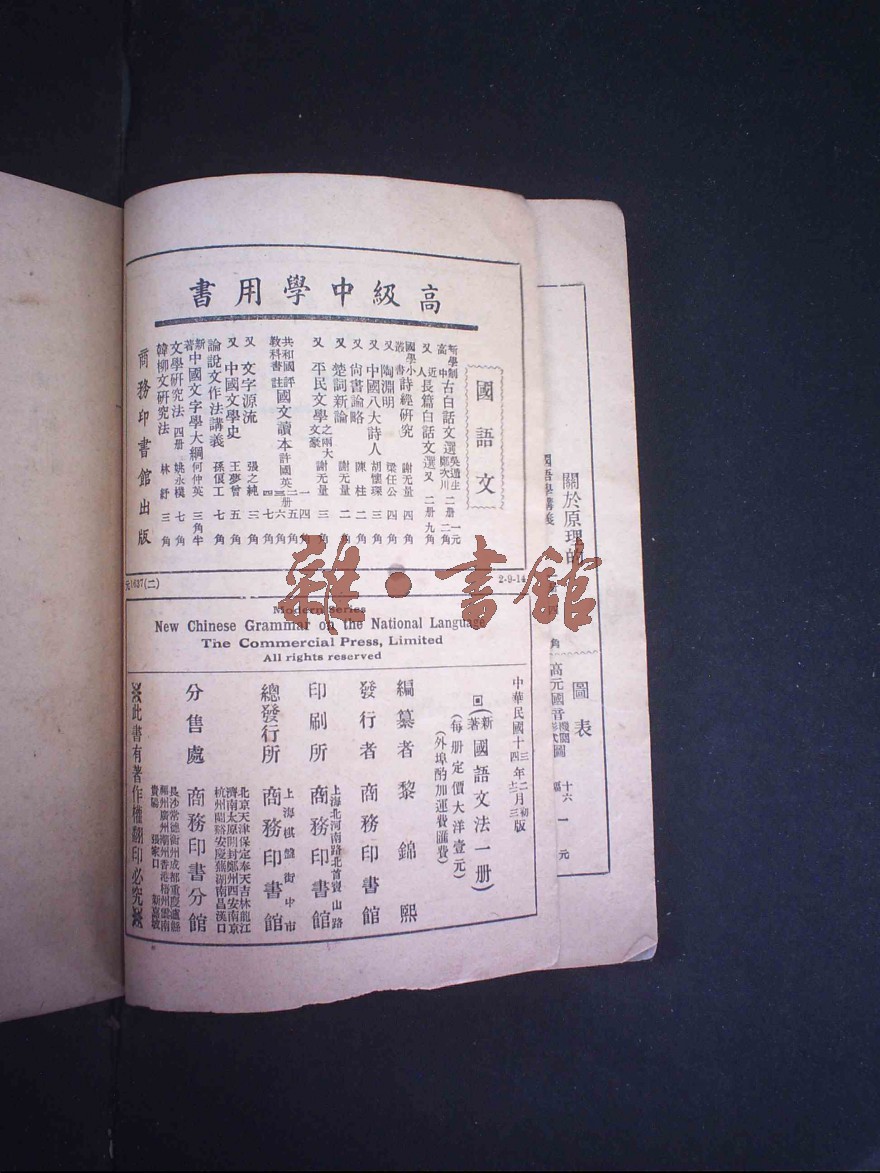 高級中學用書
國語文
新學制高中古白話文選 吳遁生 鄭次川 二册 一元二角
又 近人長篇白話文選 又 二册 九角
國學小叢書 詩經研究 謝无量 四角
又 陶淵明 梁任公 四角
又 中國八大詩人 胡懷琛 三角
又 尚書論略 陳柱 二角
又 楚詞新論 謝无量 二角
又 平民文學之兩大文豪 謝无量 三角
共和國教科書 評註國文讀本 許國英
又 文字源流 張之純 三角
又 中國文學史 王夢曾 五角
論說文作法講義 孫俍工 七角
新著中國文字學大綱 何仲英 三角半
文學研究法 四册 姚永樸 七角
韓柳文研究法 林紓 三角
商務印書館出版
元1637(二)
2-9-14
雜·書館
Modern Series
New Chinese Grammar on the National Language
The Commercial Press, Limited
All rights reserved
中華民國十三年二月初版
四年十二月三版
(新著國語文法一册)
(每册定價大洋壹元)
(外埠酌加運費匯費)
編纂者 黎錦熙
發行者 商務印書館
印刷所 上海北河南路北首寶山路 商務印書館
總發行所 上海棋盤街中市 商務印書館
分售處 商務印書分館
北京天津保定奉天吉林龍江
濟南太原開封鄭州西安南京
杭州蘭谿安慶蕪湖南昌漢口
長沙常德衡州成都重慶瀘縣
福州廣州潮州香港梧州雲南
貴陽 張家口 新嘉坡
此書有著作權翻印必究
關於原理的
國語學講義
四角
圖表
高元國音
十六
一元